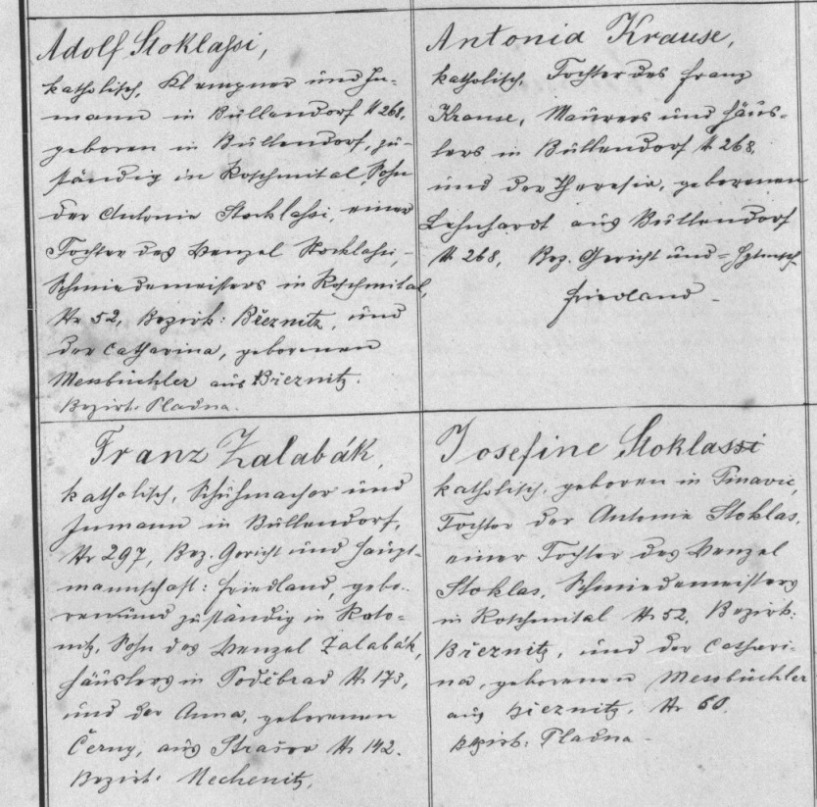 Adolf Stoklassi,
katholisch, Klempner und In-
mann in Büllendorf N 268,
geboren in Büllendorf, zu-
ständig in Roschmital, Sohn
der Antonie Stocklassi, einer
Tochter des Wenzel Stocklassi,
Schmiedemeisters in Roschmital,
Nr 52, Bezirk: Březnitz, und
der Catharina, geborenen
Messbüchler aus Březnitz.
Bezirk: Pladna.
Antonia Krause,
katholisch, Tochter des Franz
Krause, Maurers und Häus-
lers in Büllendorf N 268,
und der Theresia, geborenen
Lehnhardt aus Büllendorf
N 268, Bez. Gericht und =
Friedland
Franz Zalabák,
katholisch, Schuhmacher und
Inmann in Büllendorf,
Nr 297, Bez. Gericht und Haupt-
mannschaft: Friedland, gebo-
ren und zuständig in Roto-
nitz, Sohn des Wenzel Zalabák,
Häuslers in Poděbrad N. 173,
und der Anna, geborenen
Černy, aus Strašov N. 142.
Bezirk: Nechenitz.
Josefine Stoklassi
katholisch, geboren in Tinavic,
Tochter der Antonie Stoklas,
einer Tochter des Wenzel
Stoklas, Schmiedemeisters
in Roschmital N 52, Bezirk:
Březnitz, und der Cathari-
na, geborenen Messbüchler
aus Březnitz, N. 60.
Bezirk: Pladna